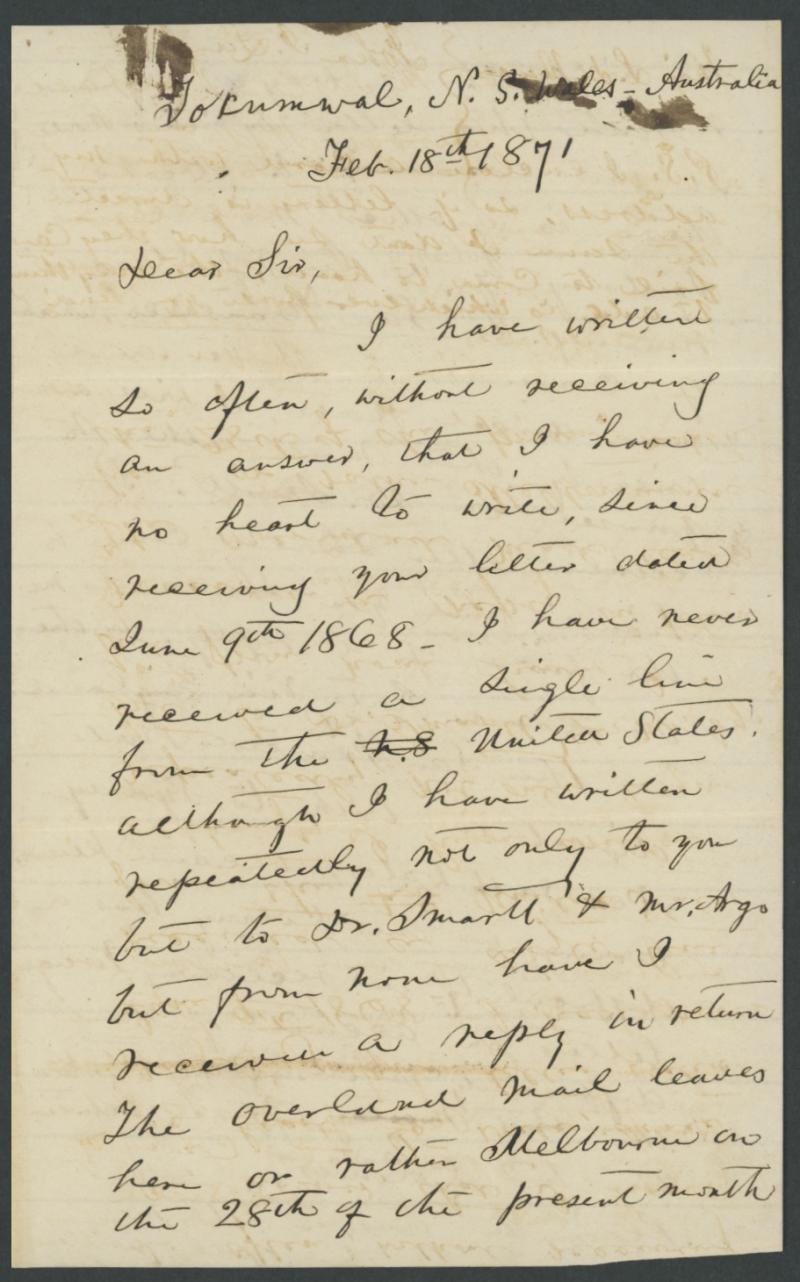 Tokumwal, N. S. Wales - Australia
Feb. 18th 1871
Dear Sir,
I have written
so often, without receiving
an answer, that I have
no heart to write, since
receiving your letter dated
June 9th 1868 - I have never
received a single line
from the N.S United States.
although I have written
repeatedly not only to you
but to Dr. Smartt & Mr. Argo
but from none have I
received a reply in return
The overland mail leaves
here or rather Melbourne on
the 28th of the present month